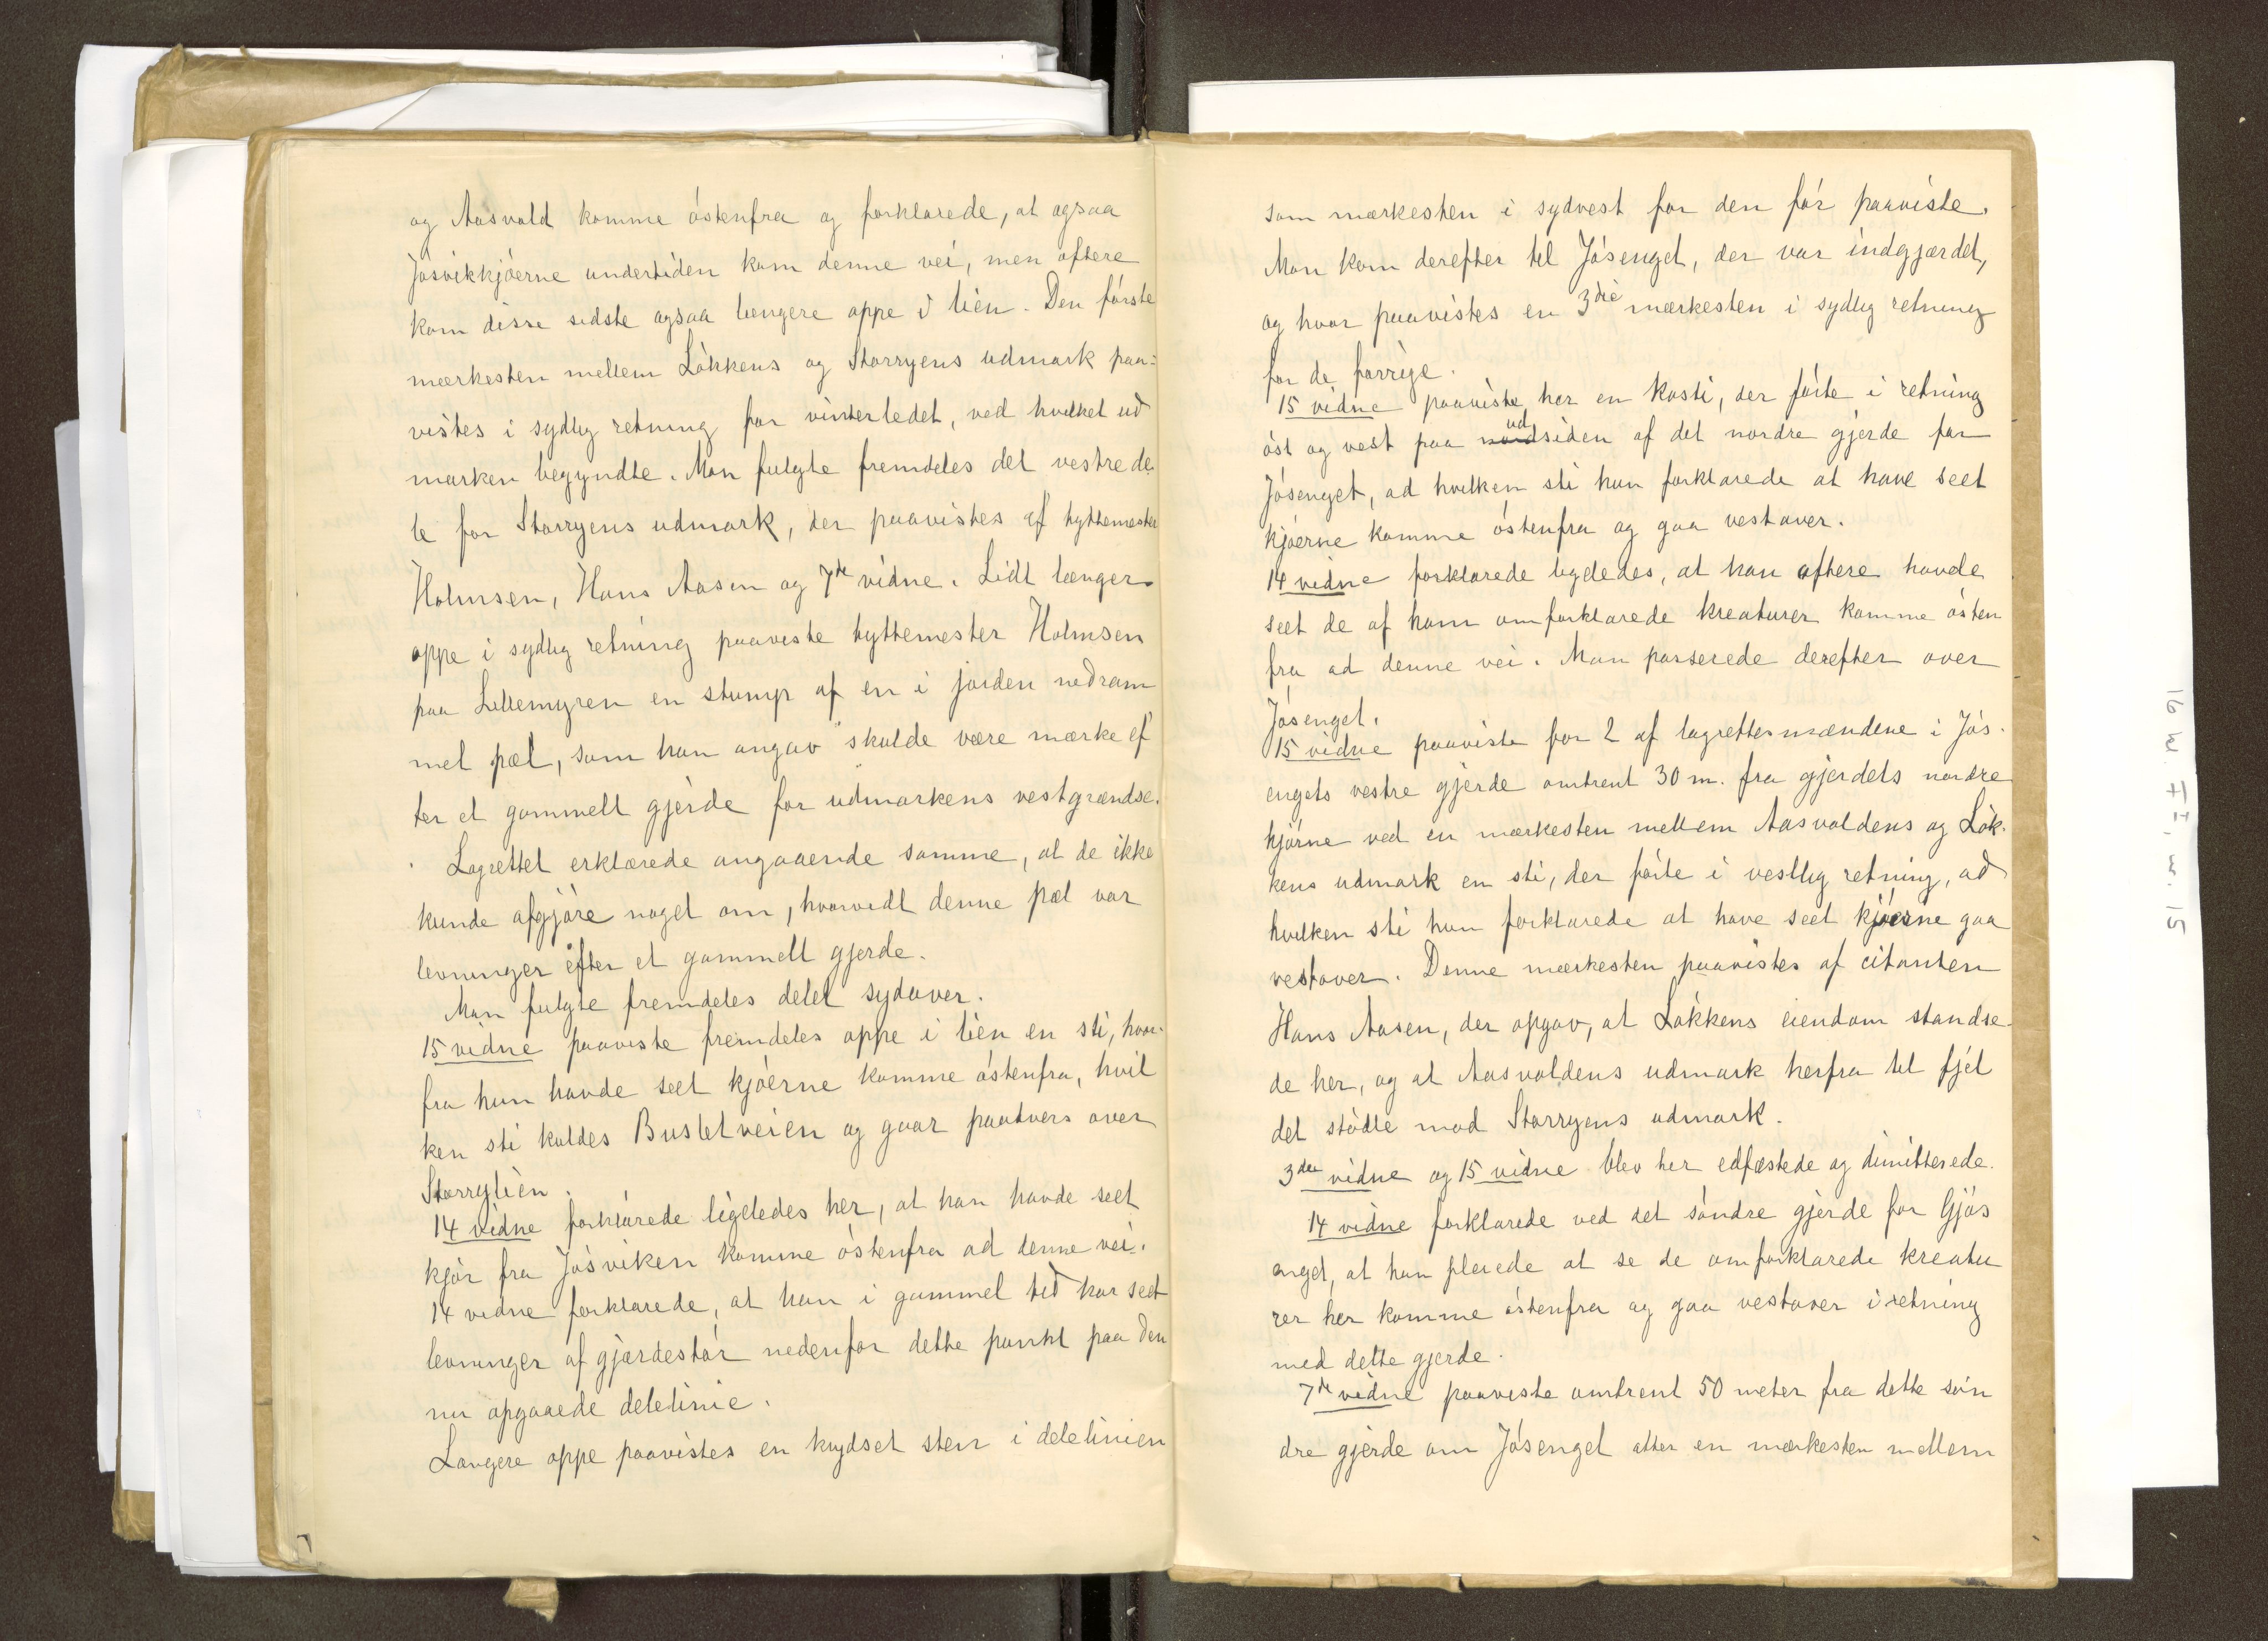 og Aasvold komme østenfra og forklarede, at ogsaa
Jøsvikkjøerne undertiden kom denne vei, men oftere
kom disse sidste ogsaa længere oppe i lien. Den første
mærkesten mellem Løkkens og Storryens udmark paa-
vistes i sydlig retning for vinterledet, ved hvilket ud
marken begyndte. Man fulgte fremdeles det vestre de
le for Storryens udmark, der paavistes af hyttemester
Holmsen, Hans Aasen og 7de vidne. Lidt længer
oppe i sydlig retning paaviste hyttemester Holmsen
paa Lillemyren en stump af en i jorden nedram
met pæl, som han angav skulde være mærke ef
ter et gammelt gjerde for udmarkens vestgrændse.
Lagrettet erklærede angaaende samme, at de ikke
kunde afgjøre noget om, hvorvidt denne pæl var
levninger efter et gammelt gjerde.
Man fulgte fremdeles delet sydover.
15 vidne paaviste fremdeles oppe i lien en sti, hvor-
fra hun havde seet kjøerne komme østenfra, hvil
ken sti kaldes Busletveien og gaar paatvers over
Storrylien.
14 vidne forklarede ligeledes her, at han havde seet
kjør fra Jøsviken komme østenfra ad denne vei.
14 vidne forklarede, at han i gammel tid har seet
levninger af gjærdestør nedenfor dette punkt paa den
nu opgaaede delelinie.
Længere oppe paavistes en krydset sten i delelinien
som mærkesten i sydvest for den før paaviste.
Man kom derefter til Jøsenget, der var indgjærdet,
og hvor paavistes en 3die mærkesten i sydlig retning
for de forrige.
15 vidne paaviste her en kosti, der førte i retning
øst og vest paa udsiden af det nordre gjerde for
Jøsenget, ad hvilken sti hun forklarede at have seet
kjøerne komme østenfra og gaa vestover.
14 vidne forklarede ligeledes, at han oftere havde
seet de af ham omforklarede kreaturer komme østen
fra ad denne vei. Man passerede derefter over
Jøsenget.
15 vidne paaviste for 2 af lagrettesmændene i Jøs-
engets vestre gjerde omtrent 30 m. fra gjerdets nordre
hjørne ved en mærkesten mellem Aasvoldens og Løk-
kens udmark en sti, der førte i vestlig retning, ad
hvilken sti hun forklarede at have seet kjøerne gaa
vestover. Denne mærkesten paavistes af citanten
Hans Aasen, der opgav, at Løkkens eiendom standse-
de her, og at Aasvoldens udmark herfra til fjel
det stødte mod Storryens udmark.
3die vidne og 15 vidne blev her edfæstede og dimitterede.
14 vidne forklarede ved det søndre gjerde for Gjøs
enget, at han pleiede at se de omforklarede kreatu
rer her komme østenfra og gaa vestover i retning
med dette gjerde.
7de vidne paaviste omtrent 50 meter fra dette søn
dre gjerde om Jøsenget atter en mærkesten mellem